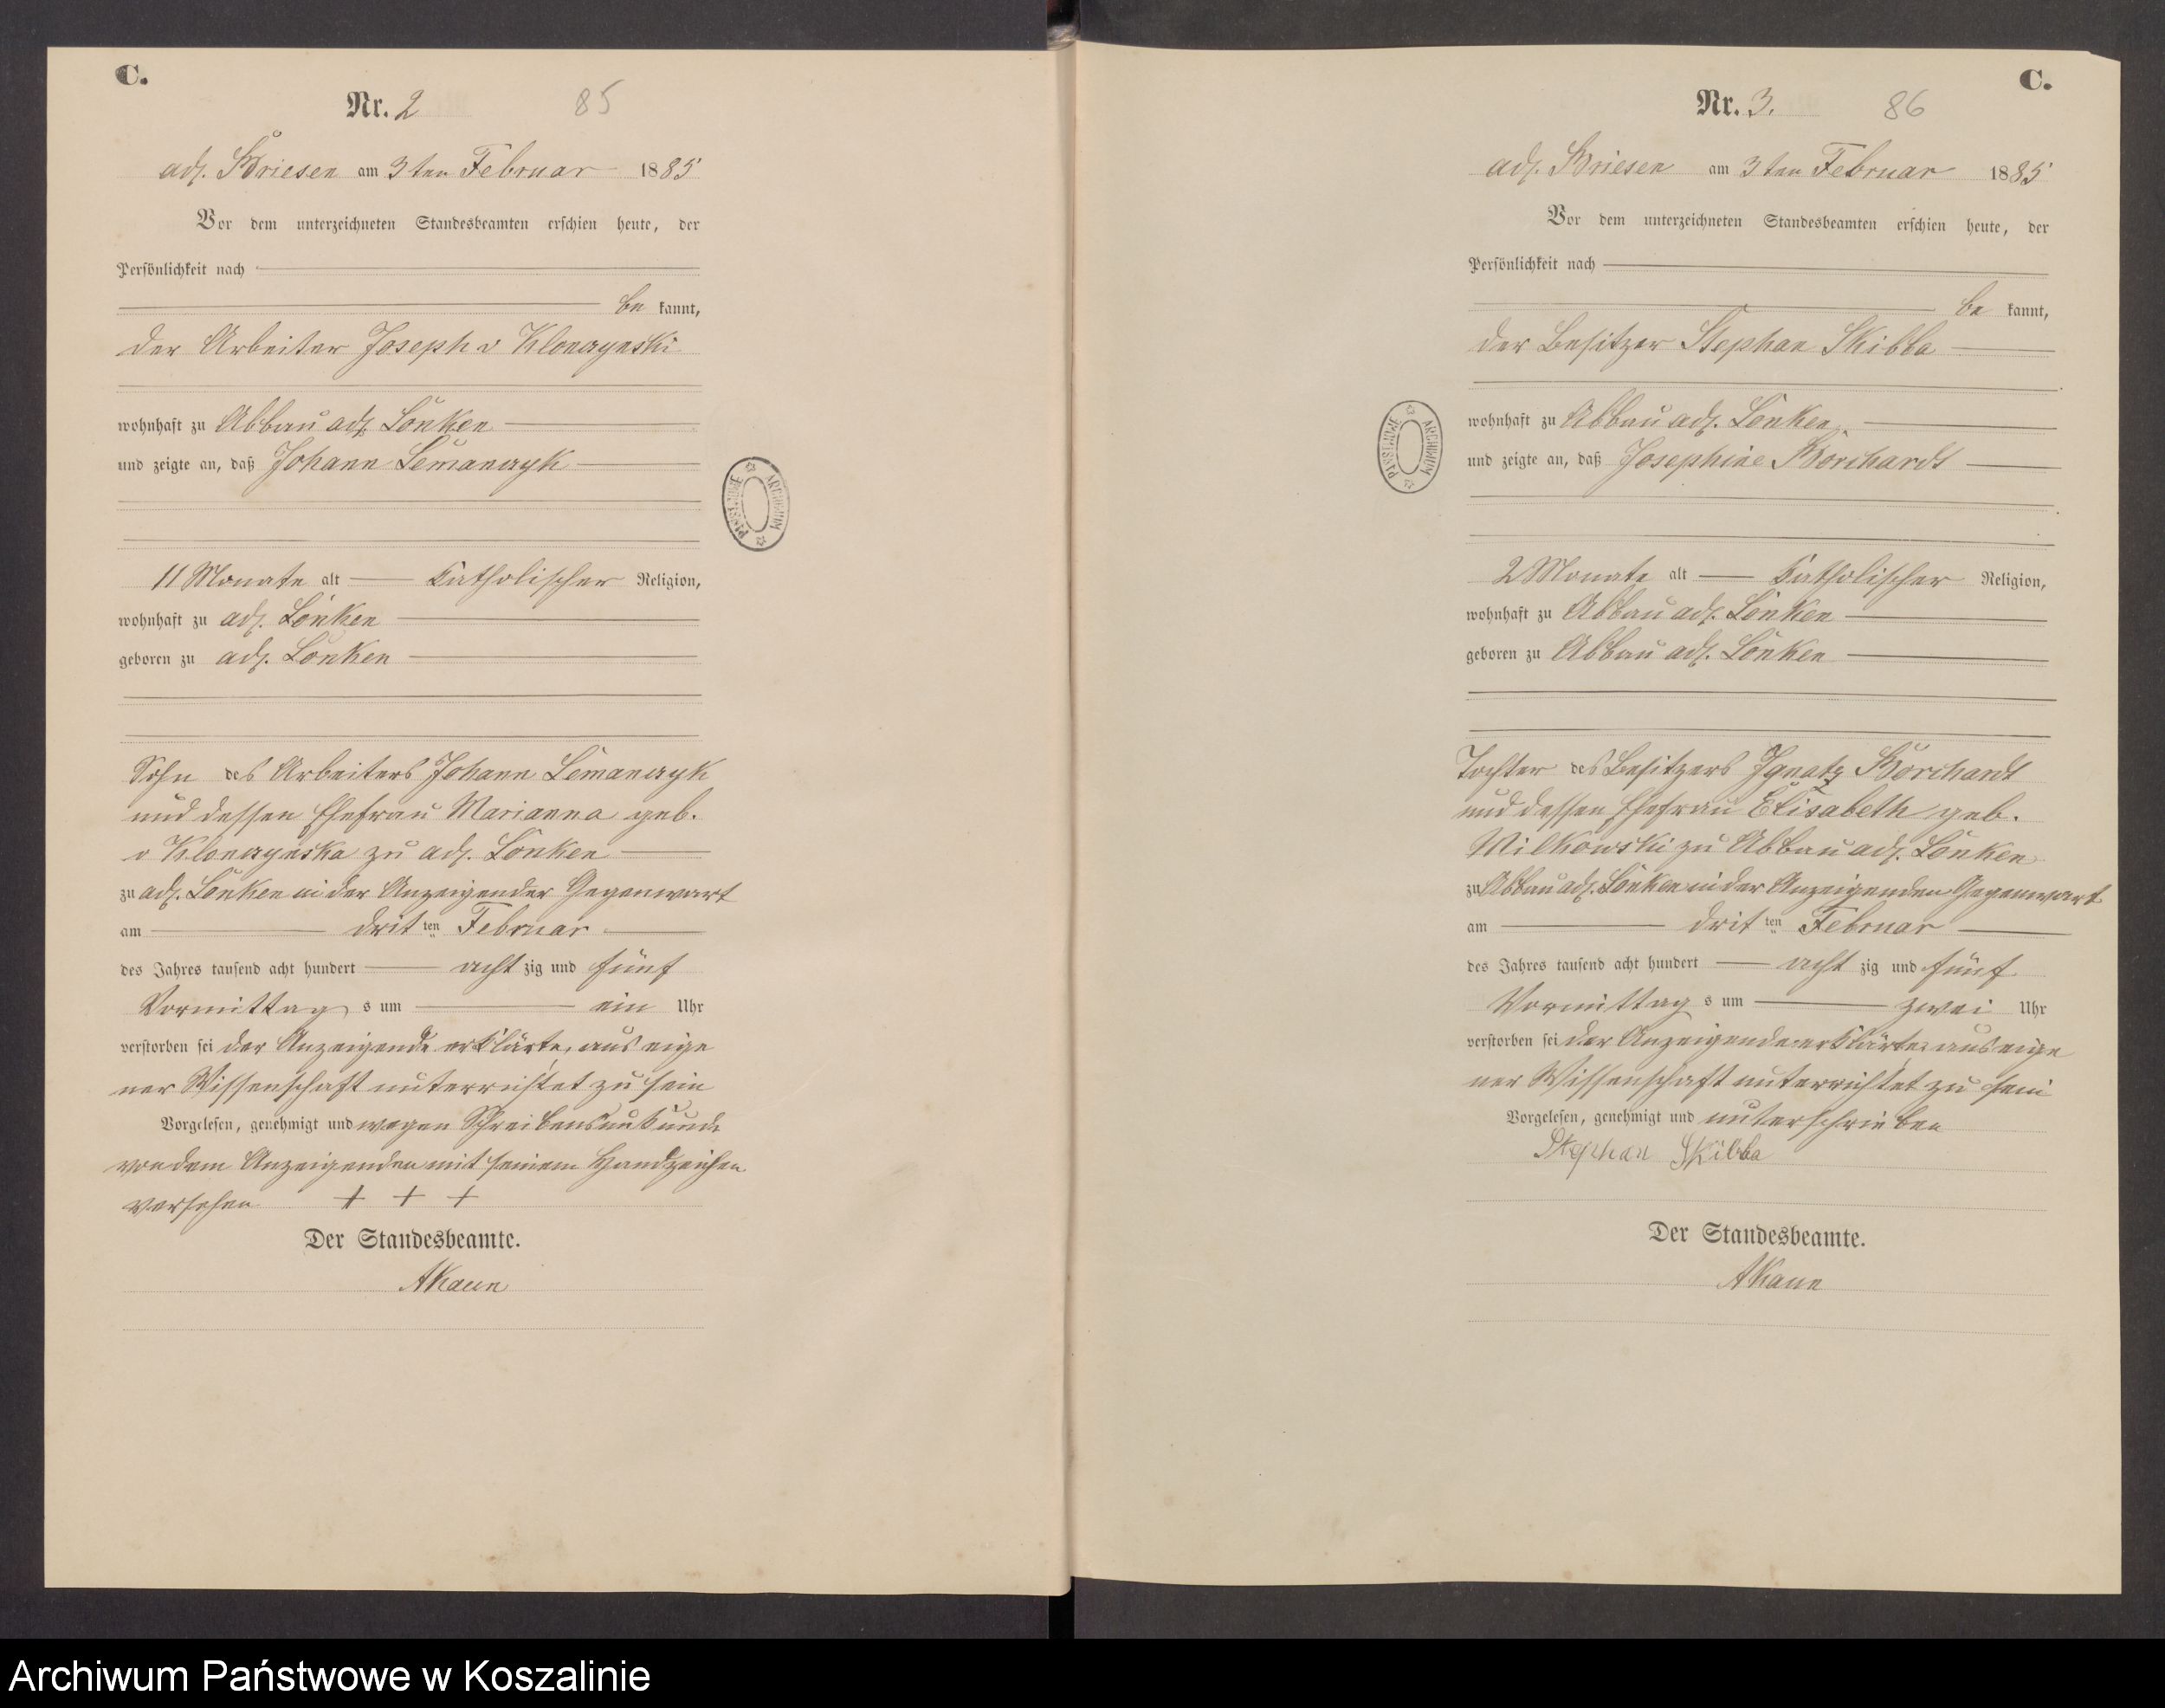 C.
Nr. 2
85
adl. Briesen am 3ten Februar 1885
Vor dem unterzeichneten Standesbeamten erschien heute, der
Persönlichkeit nach
be kannt,
der Arbeiter Joseph v Klonczynski
wohnhaft zu Abbau adl. Lonken
und zeigte an, daß Johann Lemanczyk
11 Monate alt katholischer Religion,
wohnhaft zu adl. Lonken
geboren zu adl. Lonken
Sohn des Arbeiters Johann Lemanczyk
und dessen Ehefrau Marianna geb.
v Klonczynska zu adl. Lonken
zu adl. Lonken in der Anzeigender Gegenwart
am dritten Februar
des Jahres tausend acht hundert acht zig und fünf
Vormittag s um ein Uhr
verstorben sei der Anzeigende erklärte, aus eige
ner Wissenschaft unterrichtet zu sein
Vorgelesen, genehmigt und wegen Schreibensunkunde
von dem Anzeigenden mit seinem Handzeichen
versehen + + +
Der Standesbeamte.
AKaun
PAŃSTWOWE ARCHIWUM
C.
Nr. 3.
86
adl. Briesen am 3ten Februar 1885
Vor dem unterzeichneten Standesbeamten erschien heute, der
Persönlichkeit nach
be kannt,
der Besitzer Stephan Skibba
wohnhaft zu Abbau adl. Lonken
und zeigte an, daß Josephine Borchardt
2 Monate alt katholischer Religion,
wohnhaft zu Abbau adl. Lonken
geboren zu Abbau adl. Lonken
Tochter des Besitzers Ignatz Borchardt
und dessen Ehefrau Elisabeth geb.
Milkowski zu Abbau adl. Lonken
zu Abbau adl. Lonken in der Anzeigenden Gegenwart
am dritten Februar
des Jahres tausend acht hundert acht zig und fünf
Vormittag s um zwei Uhr
verstorben sei der Anzeigende erklärte aus eige
ner Wissenschaft unterrichtet zu sein
Vorgelesen, genehmigt und unterschrieben
Stephan Skibba
Der Standesbeamte.
AKaun
PAŃSTWOWE ARCHIWUM
Archiwum Państwowe w Koszalinie